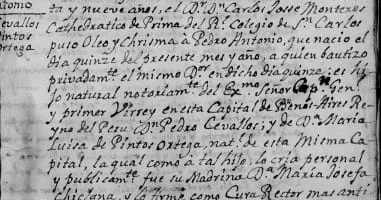 tonio
Cevallos
Pintos
Ortega
ta y nueve años, el Dr. Dn. Carlos Jose Montero
Cathedratico de Prima del Rl. Colegio de Sn. Carlos
puso Oleo y Chrisma à Pedro Antonio, que nacio el
dia quinze del presente mes y año, a quien bautizo
privadamte. el mismo Dor. en dicho dia quinze: es hi
jo natural notoriamte. del Exmo. Señor Capn. Gen
y primer Virrey en esta Capital de Buenos-Aires Rey
no del Peru Dn. Pedro Cevallos; y de Da. Maria
Luisa de Pintos Ortega, nat. de esta Misma Ca
pital, la qual como à tal hijo, lo cria personal
y publicamte. fue su Madrina Da. Maria Josefa
Chiclana, y lo firmè como Cura Rector mas anti